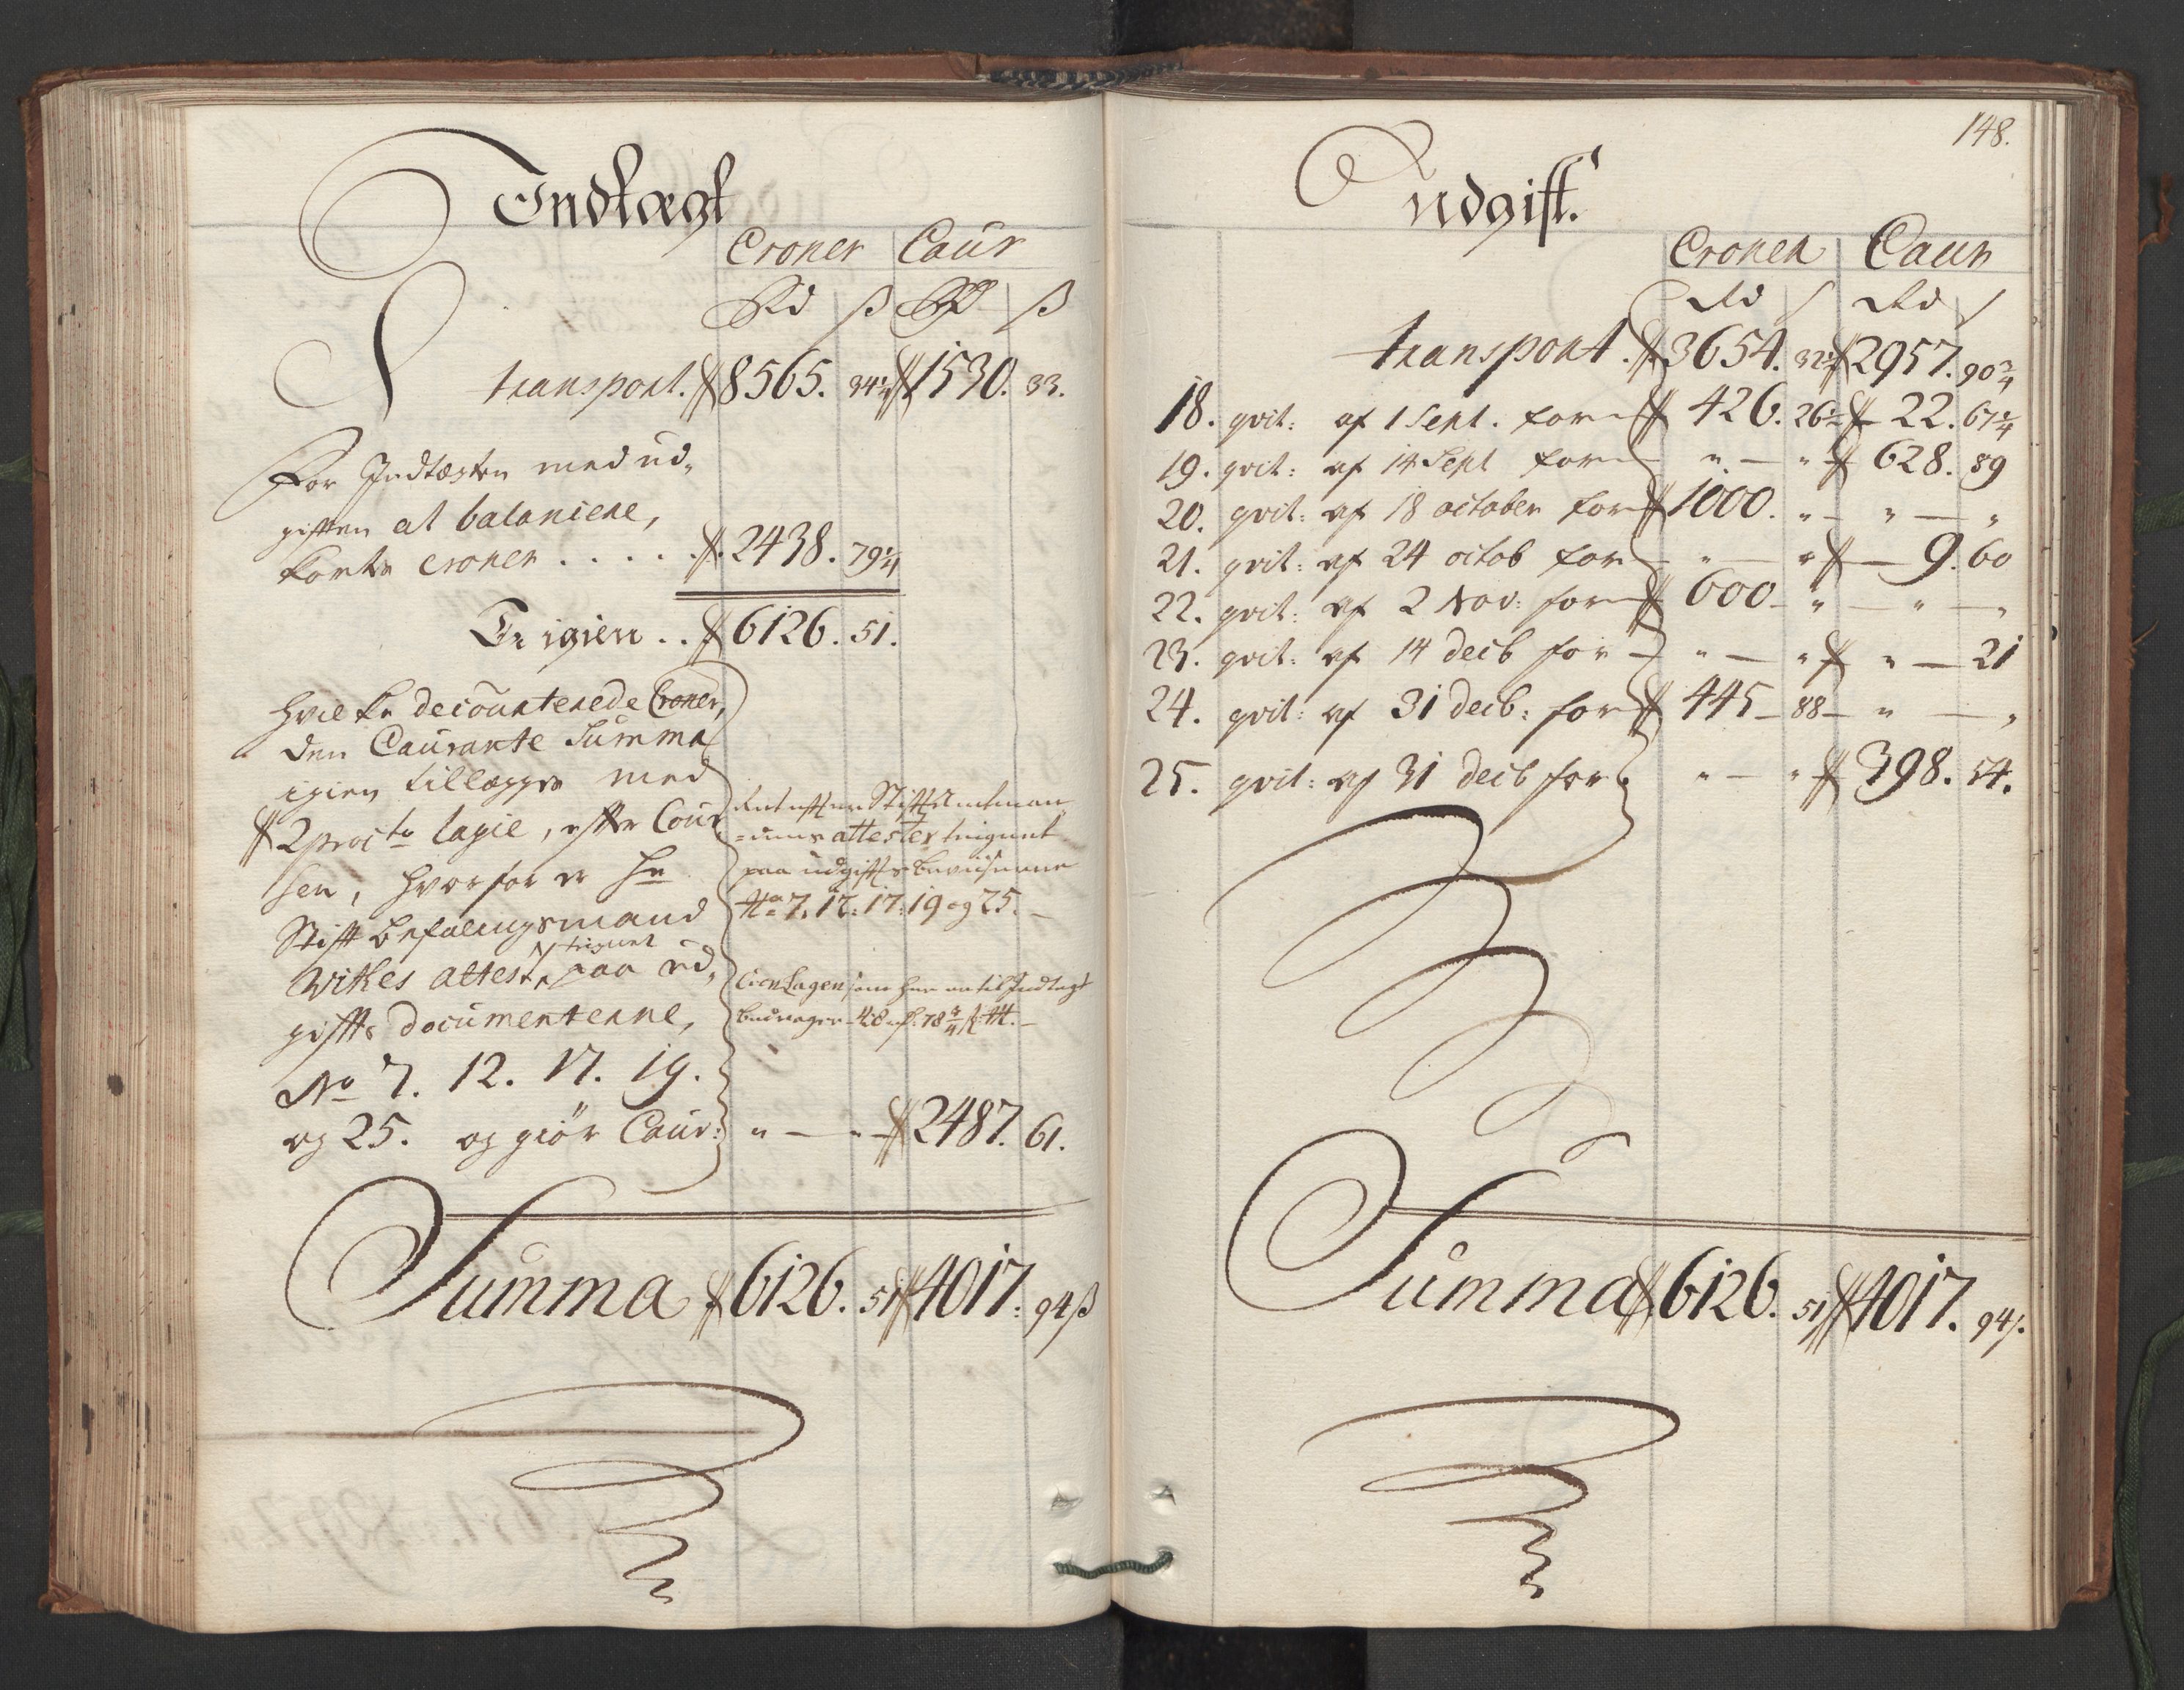 Indtægt
Croner Caur
Rd ß Rd ß
transport. 8565. 34¼ 1530. 33.
For Indtægten med ud,
giften at balanciere,
korte croner . . . . 2438. 79¼
Er igien . . 6126. 51.
hvilke decourterede Croner,
den Caurante Summa
igien tillegges med
2 procto lagie, efter Cour
sen, hvorfor er Hr
Stift befalingsmand
Wibes attester tegnet paa ud,
gifts documenterne,
No 7. 12. 17. 19.
og 25. og giör Caur: " — " — 2487. 61.
Stift Amtman
attester teignet
paa udgifts beviiserne
No 7. 12: 17: 19 og 25. —
Lagen som her er til Indtegt
bedrager 48 78¾ ß
Summa 6126. 51 4017: 94 ß
148.
Udgift.
Croner Caur
Rd ß Rd ß
transport. 3654. 32½ 2957. 90¾
18. qvit: af 1 Sept. for 426. 26½ 22. 67¼
19. qvit: af 14 Sept for — " — " 628. 89
20. qvit: af 18 october for 1000. " — " — "
21. qvit: af 24 octob for — " — " — 9. 60
22. qvit: af 2 Nov: for 600 — " — " — "
23. qvit: af 14 decb for — " — " " — 21
24. qvit: af 31 decb: for 445 — 88 — " — "
25. qvit: af 31 decb for " — " 398. 54.
Summa 6126. 51 4017. 94 ß.